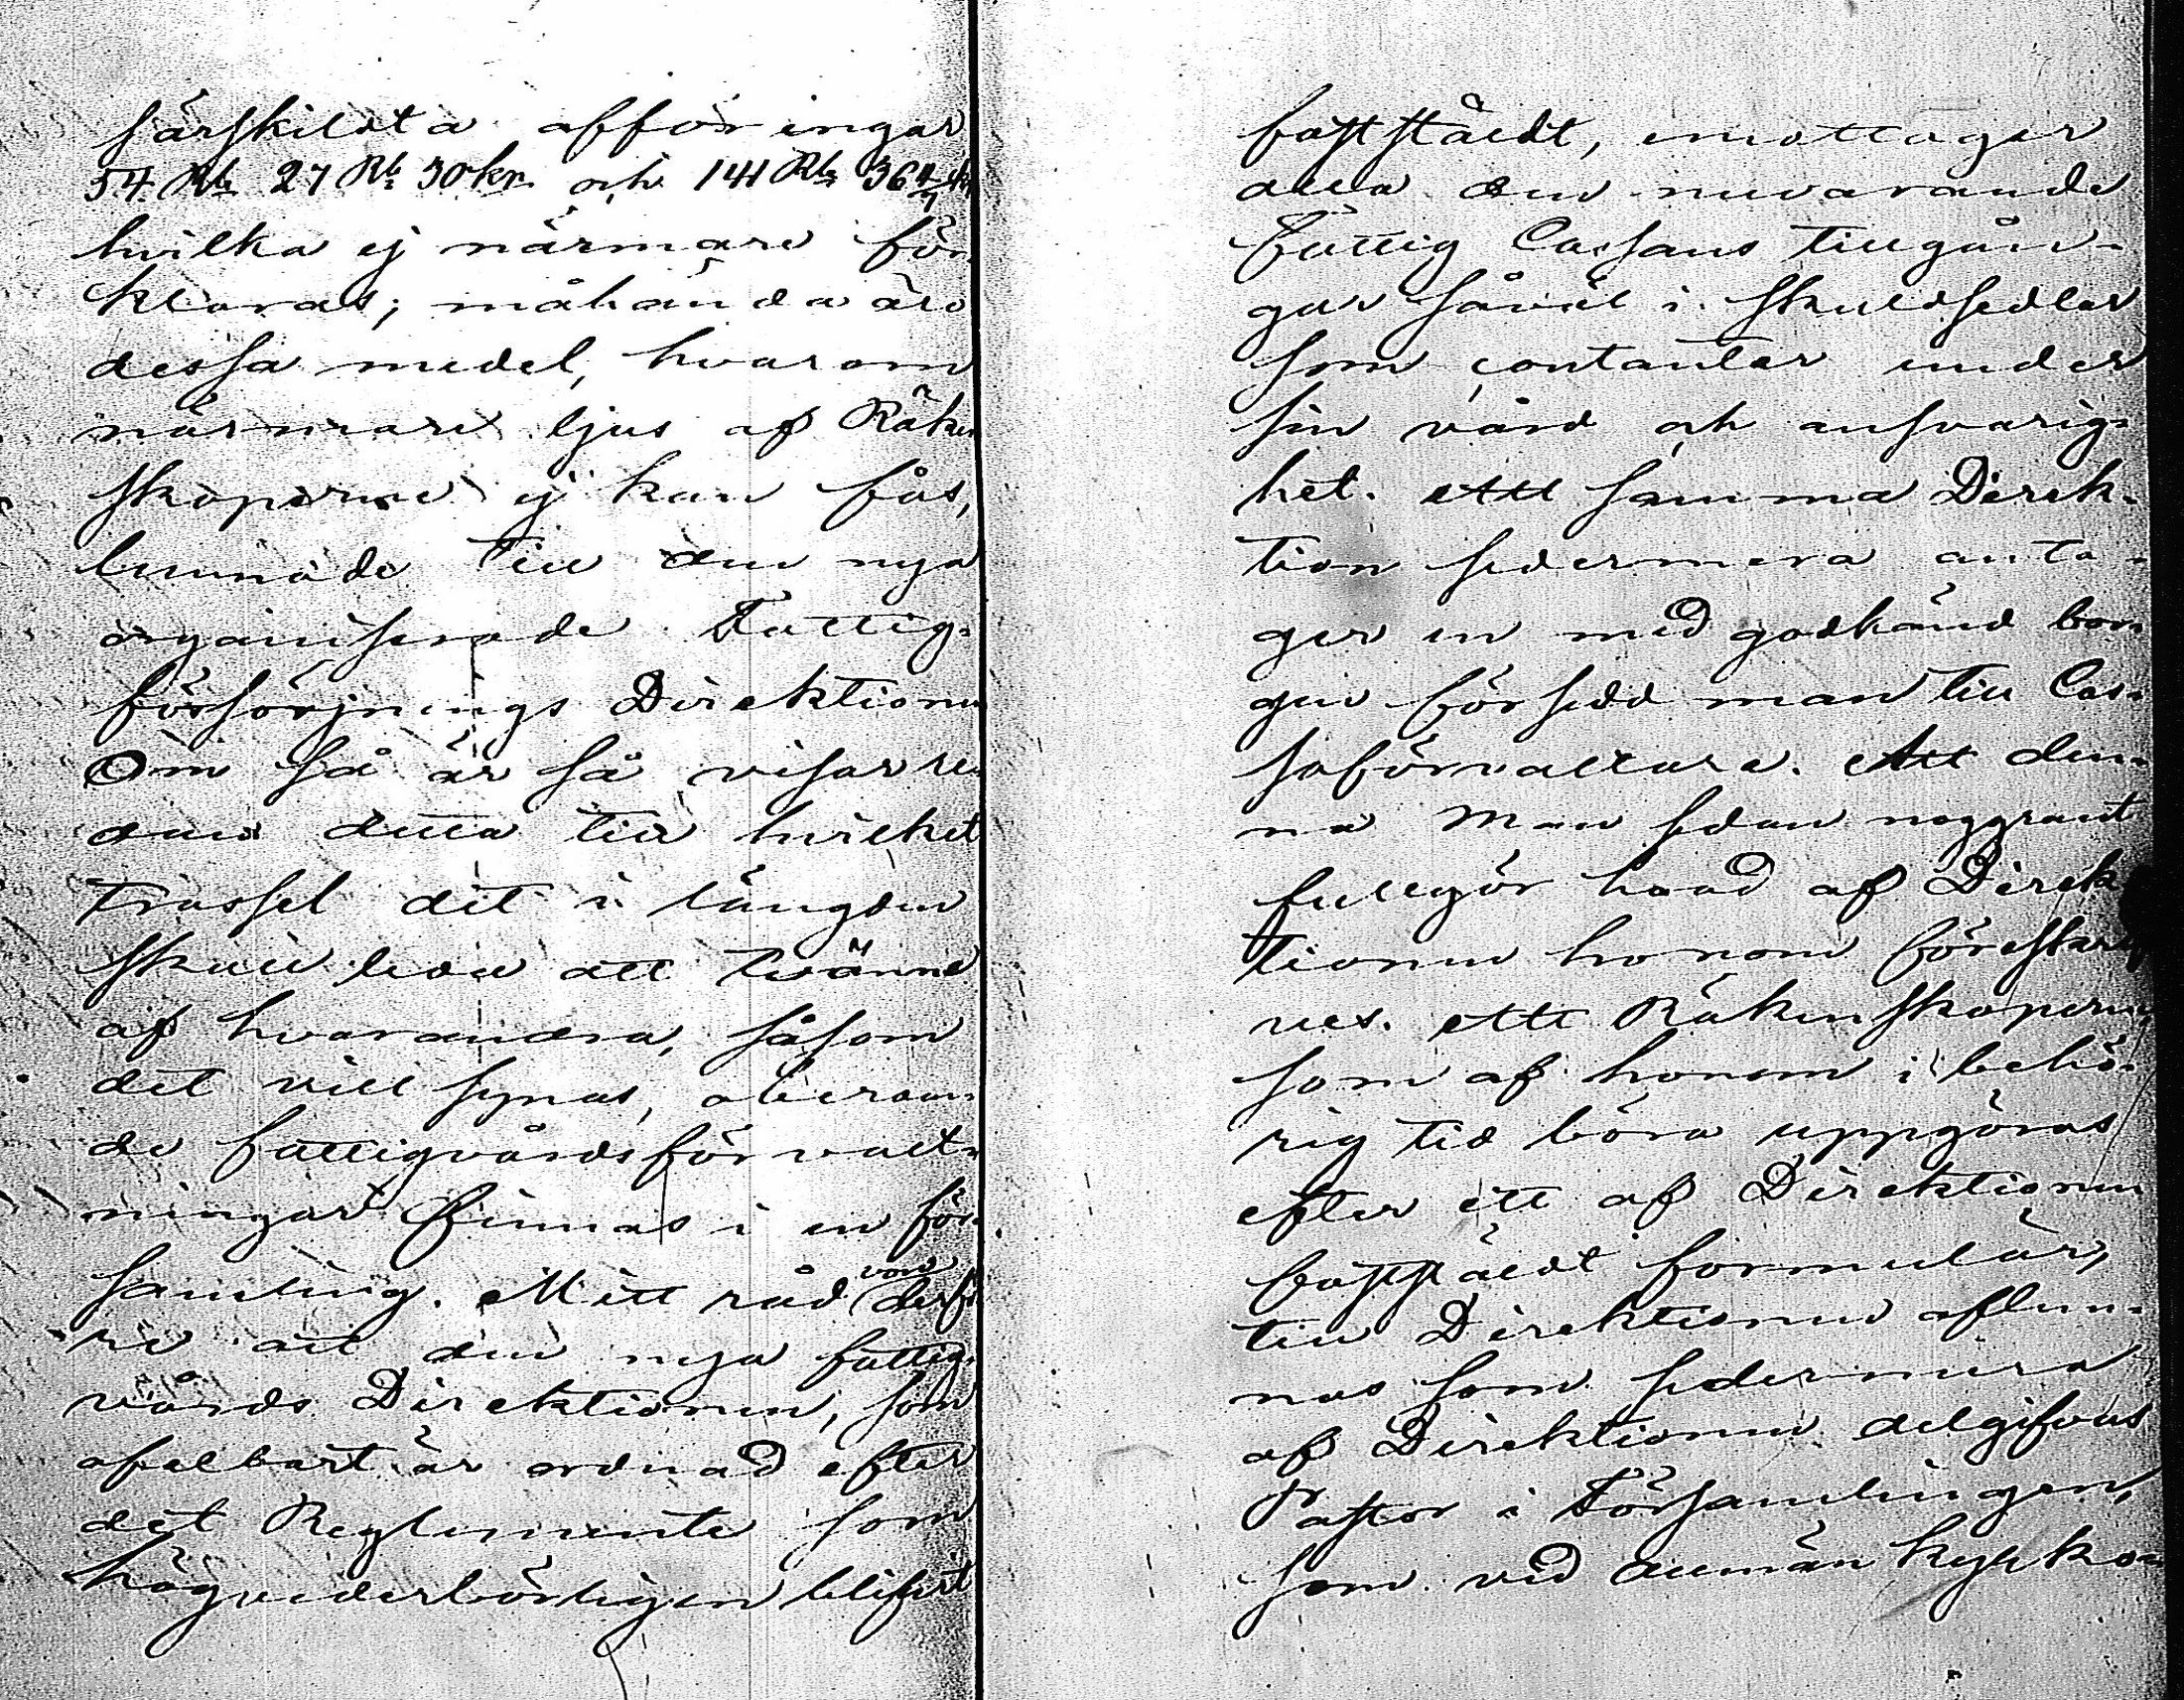 särskildta afföringar
54 Rb 27 Rb 30 kp. och 141 Rb 36
hvilka ej närmare för
klaras; måhända äro
dessa medel, hvarom
närmare ljus af Räken
skaperne ej kan fås,
lemnade till den nya
organiserade Fattig-
försörjnings Direktionen
Om så är så visar re-
dan detta till hvilket
trassel det i längden
skall leda att tvänne
af hvarandra, såsom
det vill synas, oberoen-
de fattigvårdsförvalt-
ningar finnas i en för-
samling. Mitt råd vore derfö
re att den nya fattig-
vårds Direktionen, som
ofelbart är ordnad efter
det Reglemente som
högvederbörligen blifvit
fastställdt, emottager
alla den nuvarande
Fattig Cassans tillgån-
gar såväl i skuldsedlar
som contanter under
sin vård och ansvarig-
het. Att samma Direk-
tion sedermera anta-
ger en med godkänd bor-
gen försedd man till Cas-
saförvaltare. Att den-
na man sedan noggrant
fullgör hvad af Direk
tionen honom föreskrif
ves. Att Räkenskaperne
som af honom i behö-
rig tid böra uppgöras
efter ett af Direktionen
fastställdt formulär,
till Direktionen aflem-
nas som sedermera
af Direktionen delgifvas
Pastor i Församlingen,
som vid allmän kyrko-